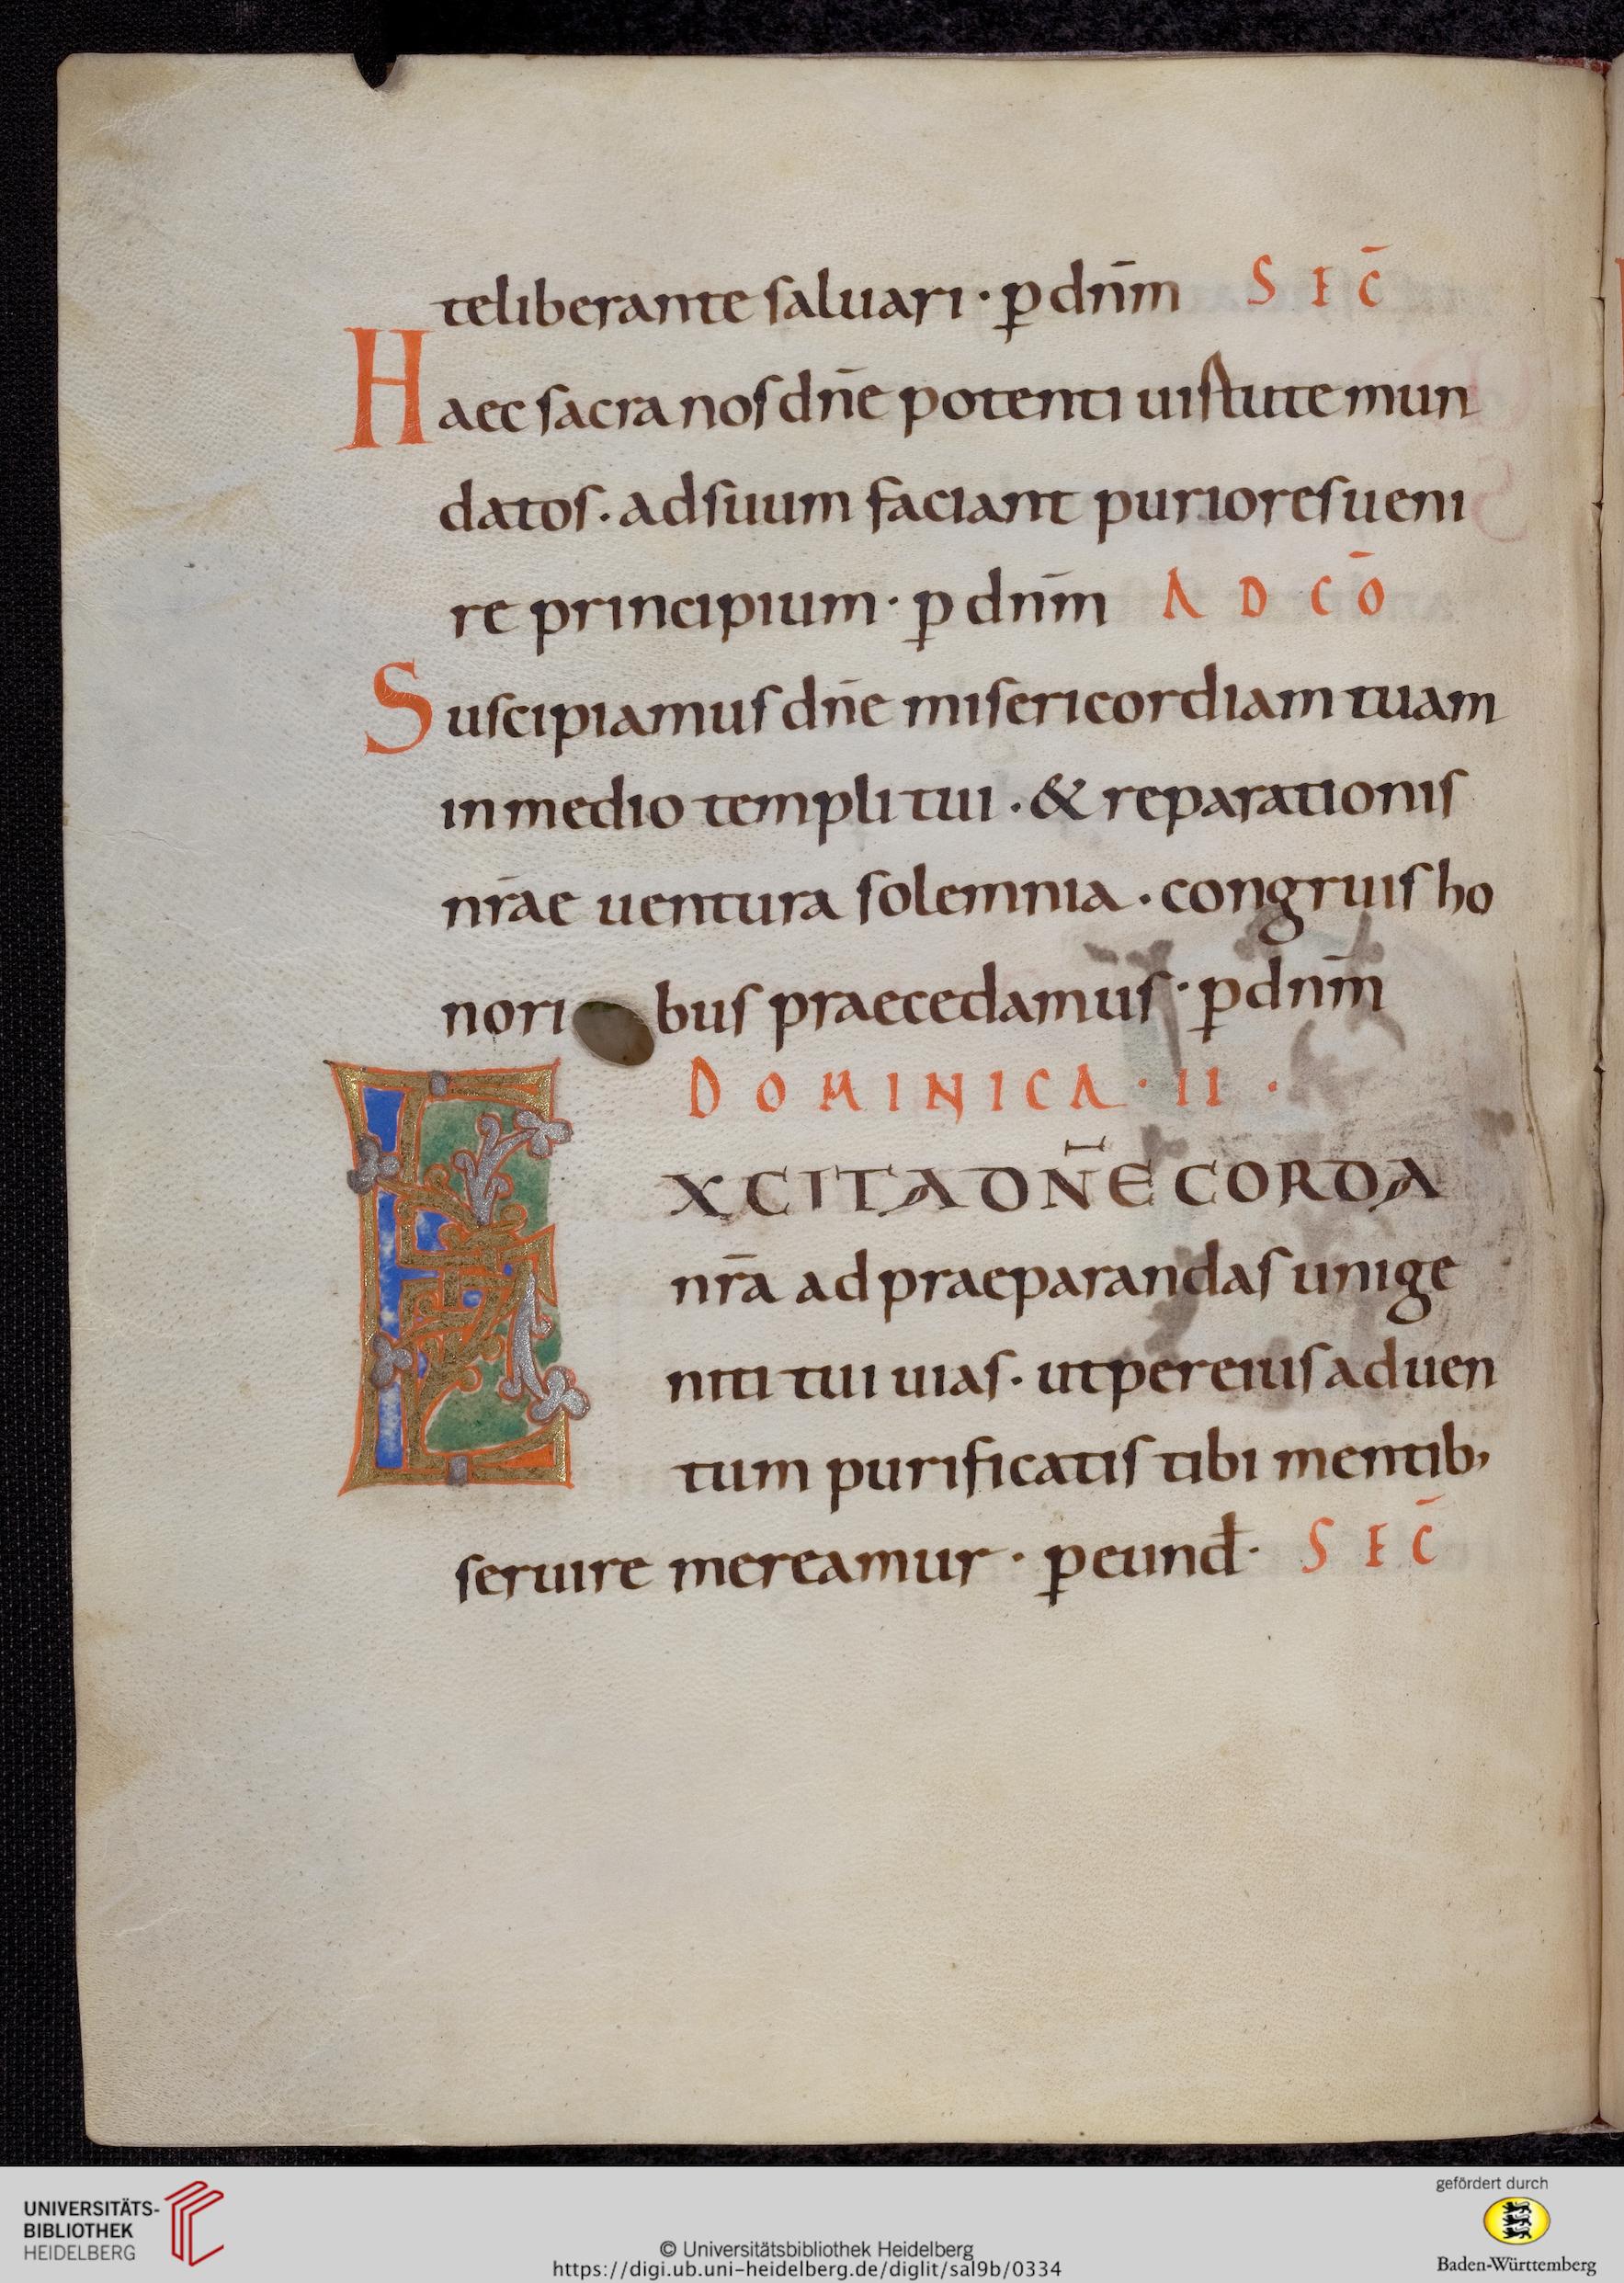 te liberante saluari · p̲ dnm̄ SEC̄
Haec sacra nos dn̄e potenti uirtute mun
datos · ad suum faciant puriores ueni
re principium · p̲ dnm̄ AD CŌ
Suscipiamus dn̄e misericordiam tuam
in medio templi tui · & reparationis
nr̄ae uentura solemnia · congruis ho
noribus praecedamus · p̲ dnm̄
DOMINICA · II ·
EXCITA DN̄E CORDA
nr̄a ad praeparandas unige
niti tui uias · ut per eius aduen
tum purificatis tibi mentib;
seruire mereamur · p̲ eund̄ · SEC̄
UNIVERSITÄTS-
BIBLIOTHEK
HEIDELBERG
© Universitätsbibliothek Heidelberg
https://digi.ub.uni-heidelberg.de/diglit/sal9b/0334
gefördert durch
Baden-Württemberg